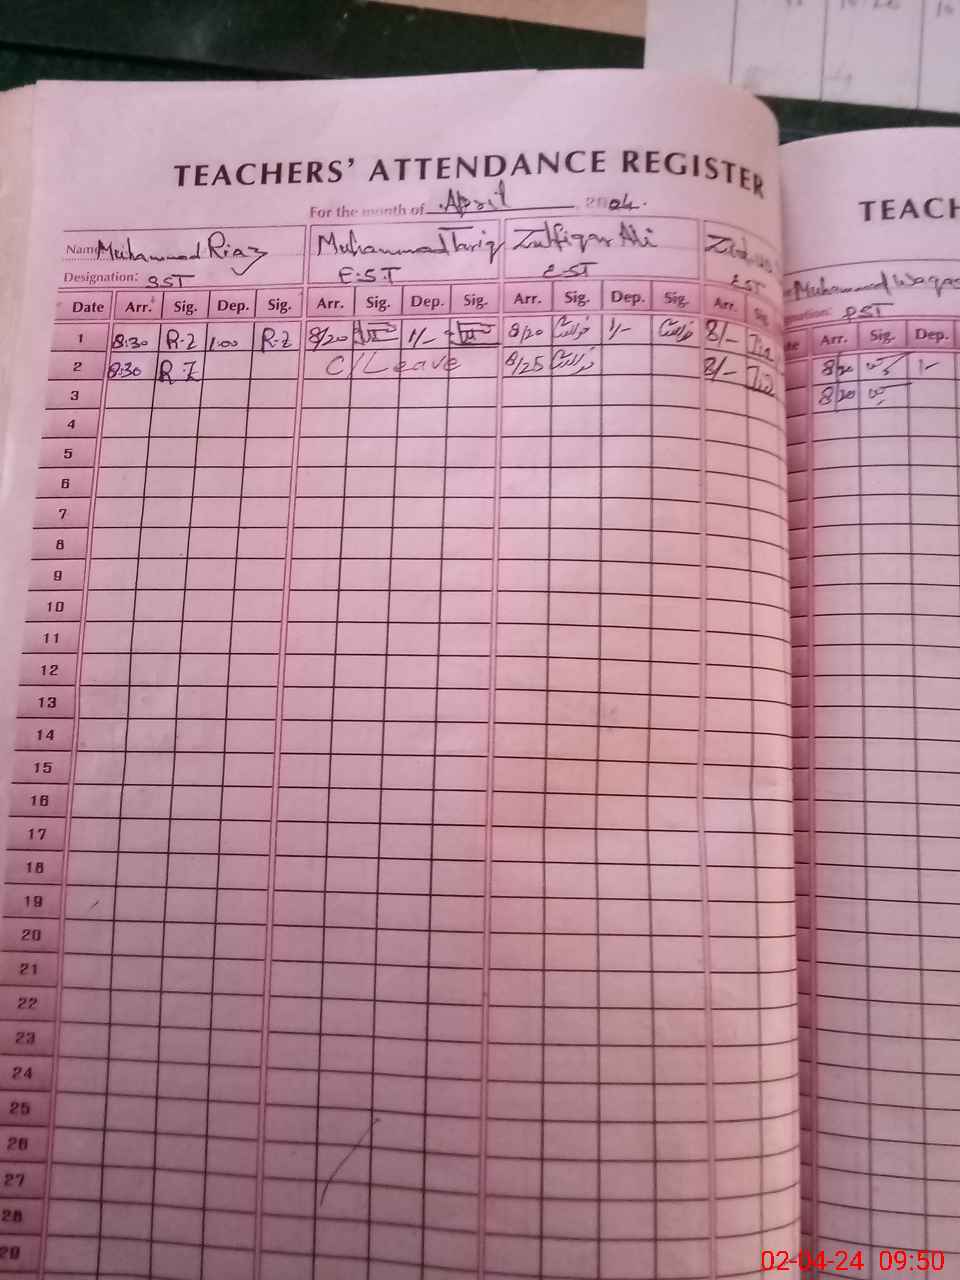 TEACHERS' ATTENDANCE REGISTER
For the month of April 2004.
TEACH
Name Muhammad Riaz Muhammad Tariq Zulfiqar Ali
Muhammad Waqas
Designation: SST E.S.T EST EST
PST
Date Arr. Sig. Dep. Sig. Arr. Sig. Dep. Sig. Arr. Sig. Dep. Sig. Arr. Arr. Sig. Dep.
1 8:30 R.Z 1:00 R.Z 8/20 1/- 8/20 1/- 8/- 8/20 1/-
2 8:30 R.Z C/Leave 8/25 8/- 8/20
3
4
5
6
7
8
9
10
11
12
13
14
15
16
17
18
19
20
21
22
23
24
25
26
27
28
29
02-04-24 09:50